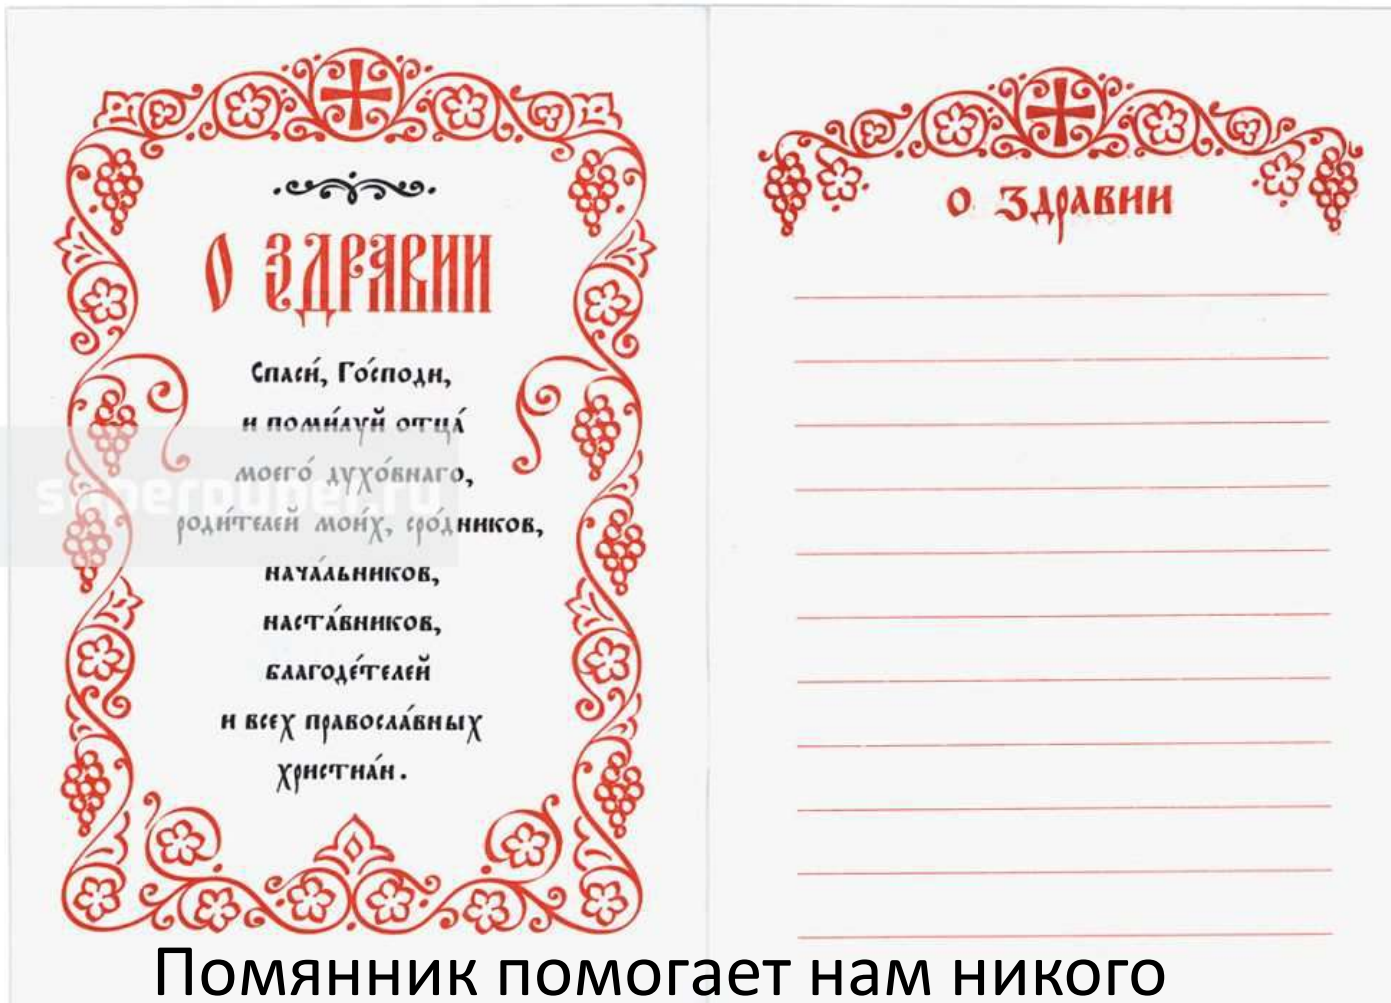 О ЗДРАВИИ
Спаси́, Го́споди,
и поми́луй отца́
моего́ духо́внаго,
роди́телей мои́х, сро́дников,
нача́льников,
наста́вников,
благоде́телей
и всех правосла́вных
христиа́н.
о здравии
superduper.ru
Помянник помогает нам никого